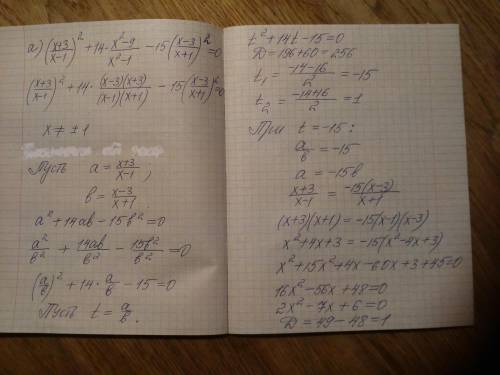 а) (x+3/x-1)² + 14 · x²-9/x²-1 - 15(x-3/x+1)² = 0
(x+3/x-1)² + 14 · (x-3)(x+3)/(x-1)(x+1) - 15(x-3/x+1)² = 0
x ≠ ±1
Пусть a = x+3/x-1 ;
b = x-3/x+1
a² + 14ab - 15b² = 0
a²/b² + 14ab/b² - 15b²/b² = 0
(a/b)² + 14 · a/b - 15 = 0
Пусть t = a/b.
t² + 14t - 15 = 0
D = 196 + 60 = 256
t₁ = -14-16/2 = -15
t₂ = -14+16/2 = 1
При t = -15 :
a/b = -15
a = -15b
x+3/x-1 = -15(x-3)/x+1
(x+3)(x+1) = -15(x-1)(x-3)
x² + 4x + 3 = -15(x² - 4x + 3)
x² + 15x² + 4x - 60x + 3 + 45 = 0
16x² - 56x + 48 = 0
2x² - 7x + 6 = 0
D = 49 - 48 = 1